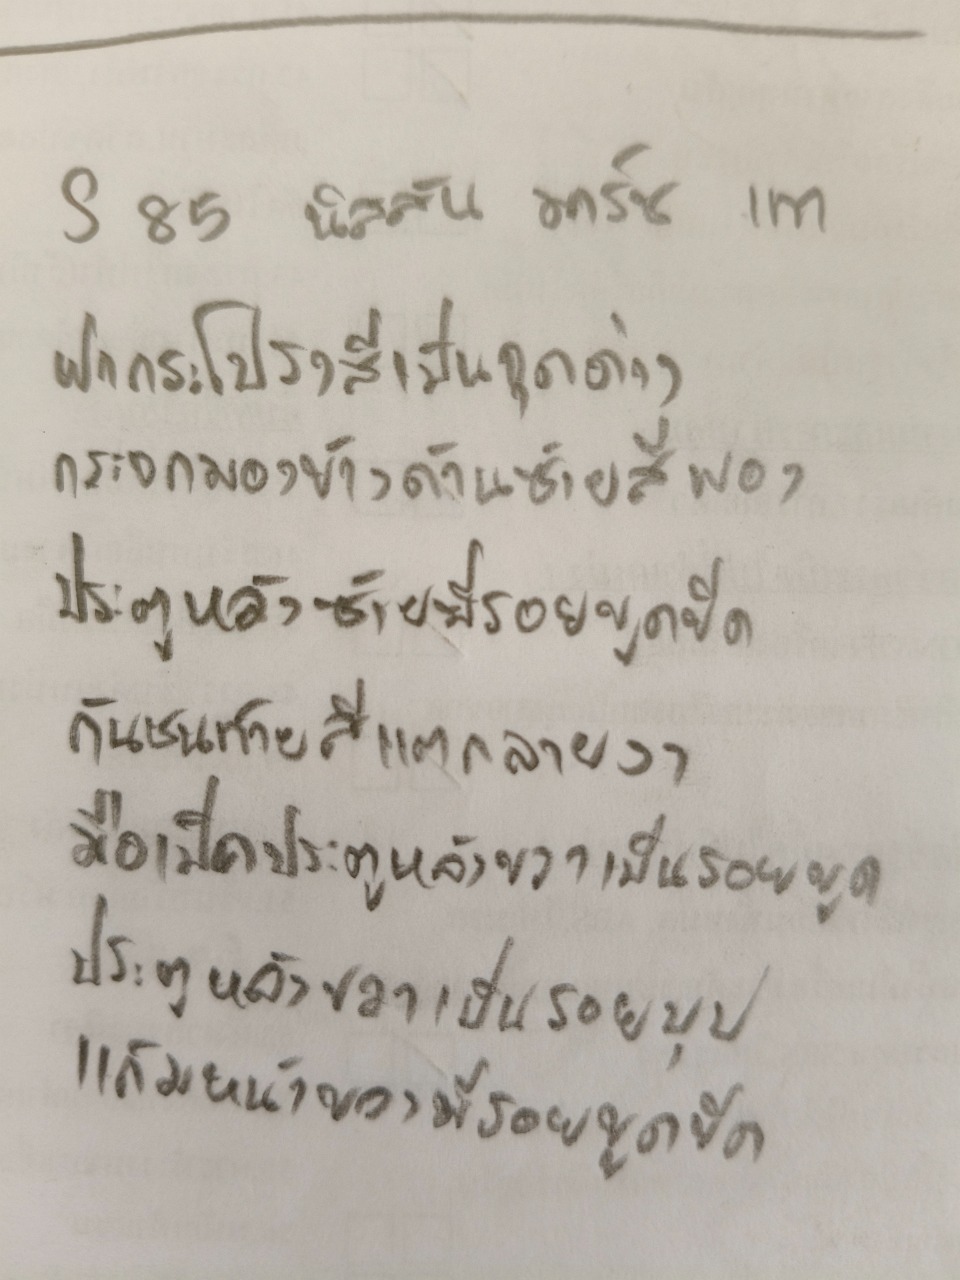 S 85 นิสสัน มาร์ช เทา
ฝากระโปรงสีเป็นจุดด่าง
กระจกมองข้างด้านซ้ายสีพอง
ประตูหลังซ้ายมีรอยขูดขีด
กันชนท้ายสีแตกลายงา
มือเปิดประตูหลังขวาเป็นรอยขูด
ประตูหลังขวาเป็นรอยบุบ
แก้มหน้าขวามีรอยขูดขีด